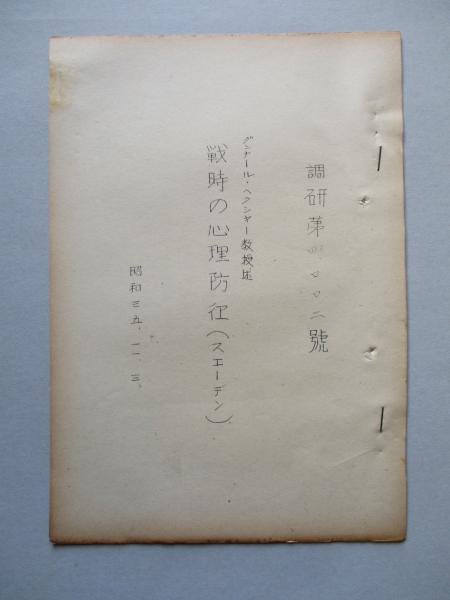 調研第〇〇二號
グンナール・ヘクシャー教授述
戦時の心理防衛(スエーデン)
昭和三五、一一、三、